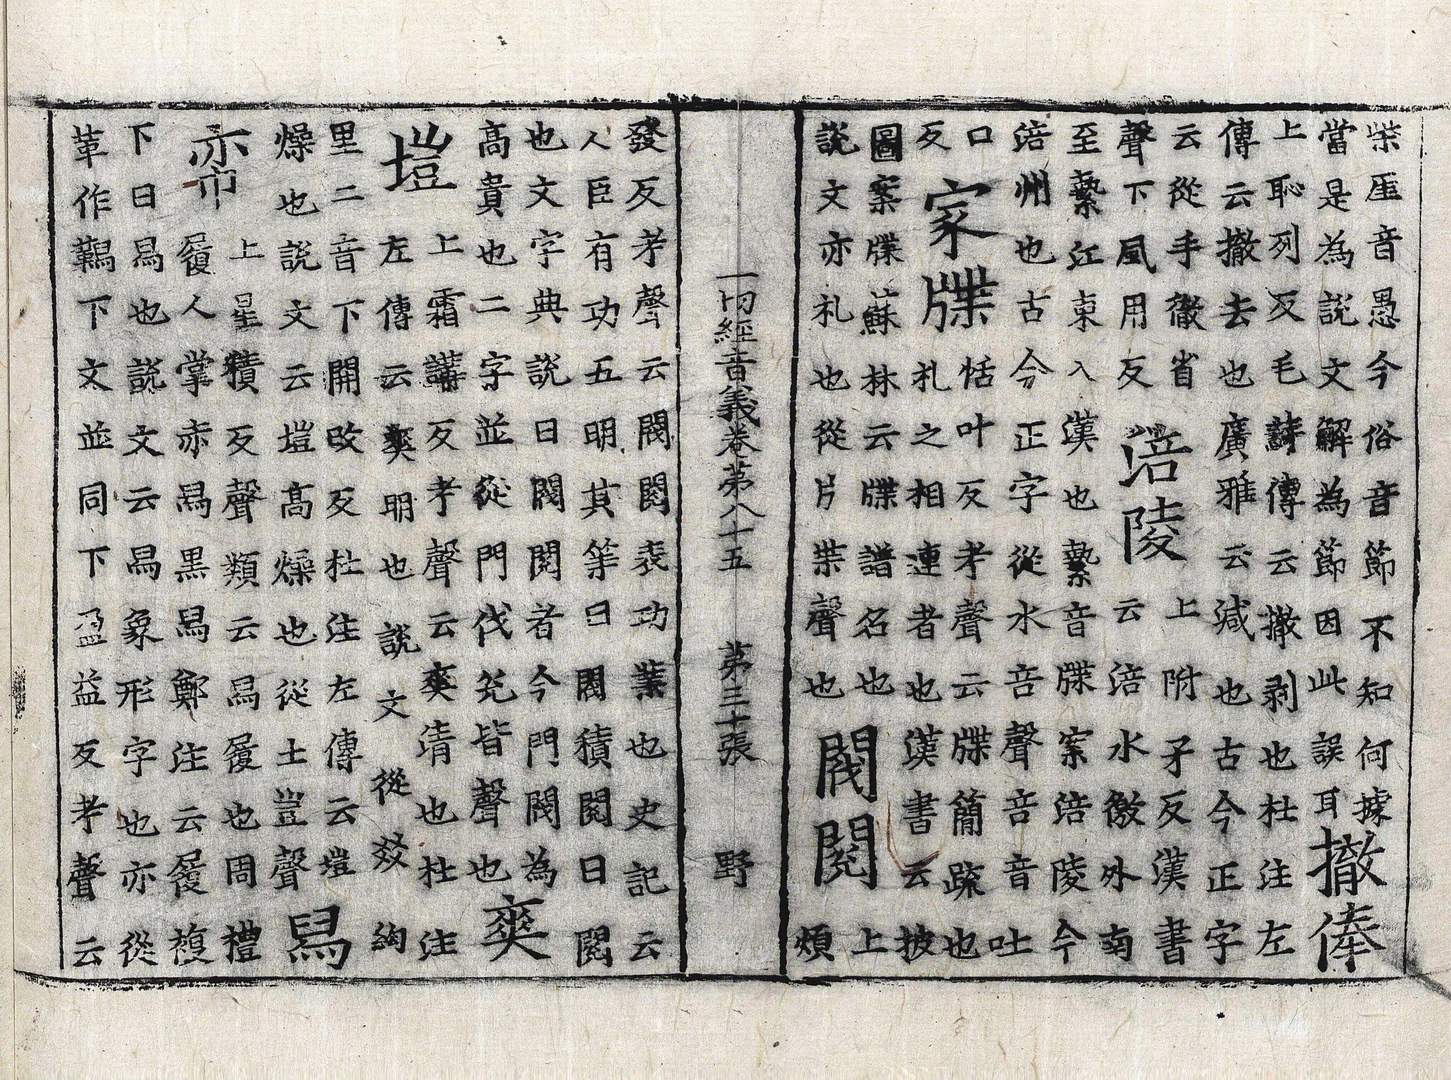 柴厓音愚今俗音節不知何據
當是為説文解為節因此誤耳
撤俸
上恥列反毛詩傳云撤剥也杜注左
傳云撤去也廣雅云減也古今正字
云從手徹省
聲下風用反
涪陵
上附矛反漢書
云涪水徼外南
至繫江東入漢也繫音牒案涪陵今
涪州也古今正字從水音聲音音吐
口
反
家牒
恬叶反考聲云牒蕳疏也
札之相連者也漢書云披
圖案牒蘇林云牒譜名也
説文亦札也從片枼聲也
閥閱
上
煩
一切經音義卷第八十五 第三十張 野
發反考聲云閥閱表功業也史記云
人臣有功五明其等曰閥積閱日閱
也文字典説曰閥閱者今門閥為
高貴也二字並從門伐兊皆聲也
爽
塏
上霜講反考聲云爽清也杜注
左傳云爽明也説文從㸚絢
里二音下開改反杜注左傳云塏
燥也説文云塏高燥也從土豈聲
舄
亦
上星積反聲類云舄履也周禮
履人掌赤舄黒舄鄭注云履複
下曰舄也説文云舄象形字也亦從
革作䩨下文並同下盈益反考聲云